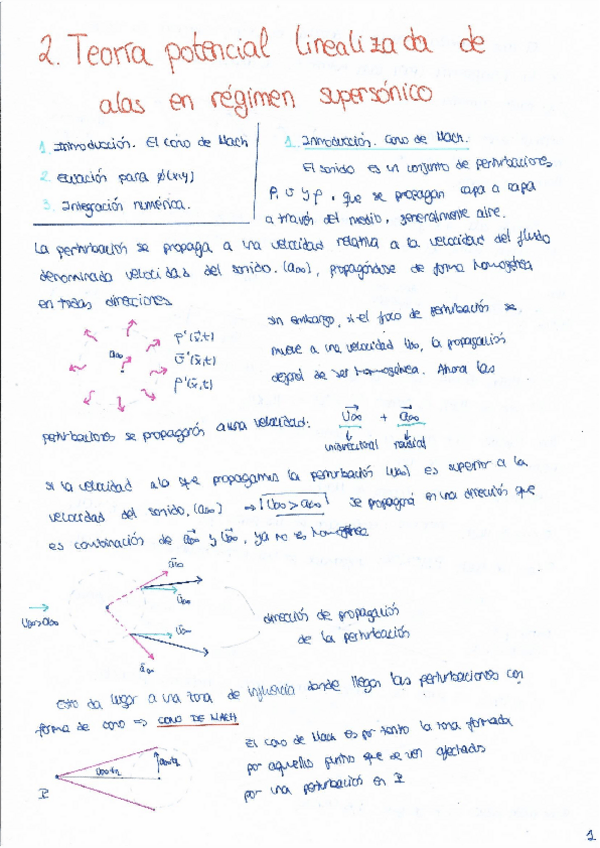 2. Teoría potencial linealizada de
alas en régimen supersónico
1. Introducción. El cono de Mach
2. Ecuación para φ(x,y)
3. Integración numérica.
1. Introducción. Cono de Mach.
El sonido es un conjunto de perturbaciones
P, υ y ρ, que se propagan capa a capa
a través del medio, generalmente aire.
La perturbación se propaga a una velocidad relativa a la velocidad del fluido
denominada velocidad del sonido. (a∞), propagándose de forma homogénea
en todas direcciones
a∞
P'(x̄,t)
ῡ'(x̄,t)
ρ'(x̄,t)
sin embargo, si el foco de perturbación se
mueve a una velocidad U∞, la propagación
dejará de ser homogénea. Ahora las
perturbaciones se propagarán a una velocidad: U∞ + a∞
unidireccional radial
si la velocidad a la que propagamos la perturbación (U∞) es superior a la
velocidad del sonido, (a∞) ⇒ U∞ > a∞ se propagará en una dirección que
es combinación de a∞ y U∞, ya no es homogénea
U∞>a∞
a∞
U∞
U∞
a∞
dirección de propagación
de la perturbación
Esto da lugar a una zona de influencia donde llegan las perturbaciones con
forma de cono ⇒ CONO DE MACH
P
El cono de Mach es por tanto la zona formada
por aquellos puntos que se ven afectados
por una perturbación en P
1